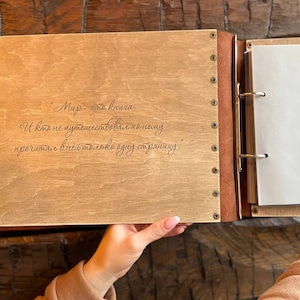 "Мир - это книга.
И кто не путешествовал по нему -
прочитал в ней только одну страницу."